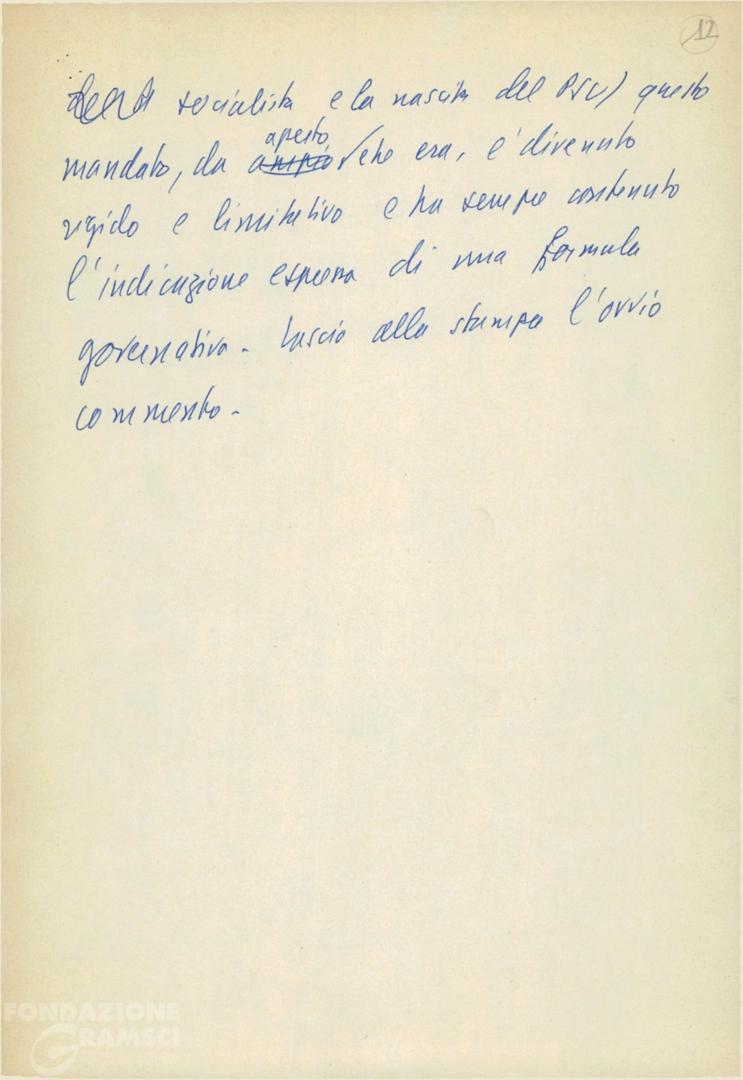 12
socialista e la nascita del PSU) questo
aperto
mandato, da ampio che era, e' divenuto
rigido e limitativo e ha sempre contenuto
l'indicazione espressa di una formula
governativa. Lascio alla stampa l'ovvio
commento.
FONDAZIONE
GRAMSCI